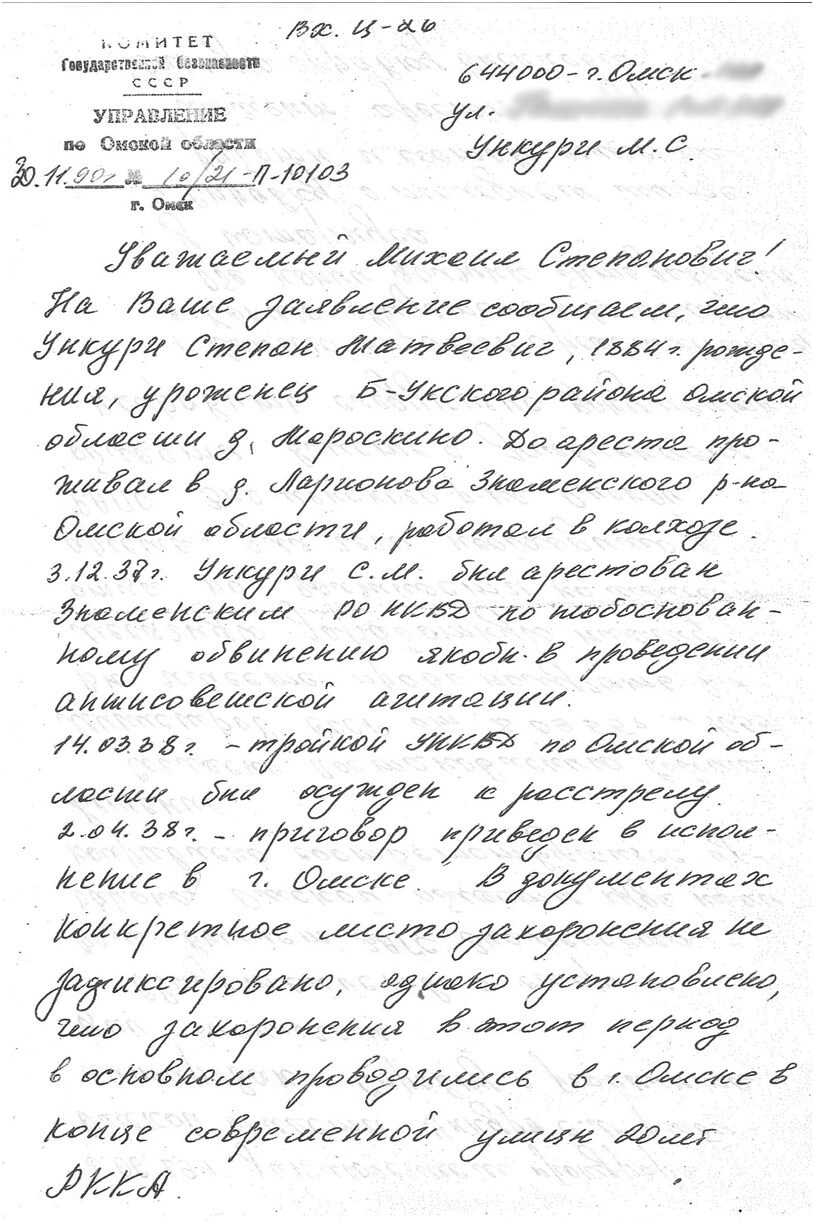 Вх. Ц-26
КОМИТЕТ
Государственной Безопасности
СССР
УПРАВЛЕНИЕ
по Омской области
20.11.90г № 10/21-П-10103
г. Омск
644000-г. Омск-
ул.
Ункури М.С.
Уважаемый Михаил Степанович!
На Ваше заявление сообщаем, что
Ункури Степан Матвеевич, 1884 г. рожде-
ния, уроженец Б-Укского района Омской
области д. Мароскино. До ареста про-
живал в д. Ларионова Знаменского р-на
Омской области, работал в колхозе.
3.12.37г. Ункури С.М. был арестован
Знаменским РО НКВД по необоснован-
ному обвинению якобы в проведении
антисоветской агитации.
14.03.38г. – тройкой УНКВД по Омской об-
ласти был осужден к расстрелу.
2.04.38г. – приговор приведен в испол-
нение в г. Омске. В документах
конкретное место захоронения не
зафиксировано, однако установлено,
что захоронения в этот период
в основном проводились в г. Омске в
конце современной улицы 20 лет
РККА.